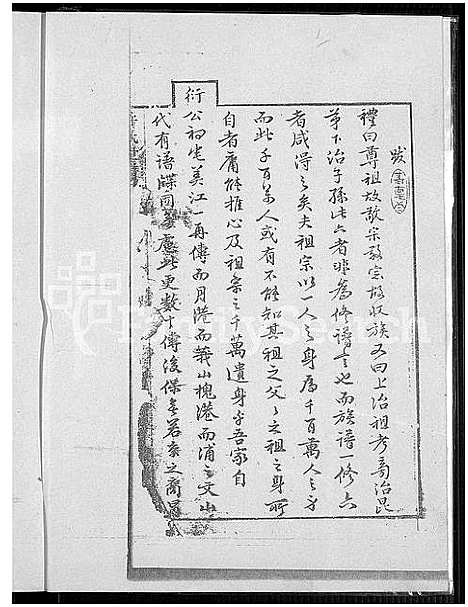 跋
禮曰尊祖故敬宗敬宗故收族又曰上治祖考旁治昆
弟下治子孫此六者非為修譜言也而族譜一修六
者咸得之矣夫祖宗以一人之身為千百萬人之身
而此千百萬人或有不能知其祖之父父之祖之身所
自者庸能推心及祖宗之千萬遺身乎吾家自
衍公初宅美江一再傳而月港而義山槐港而浦之文山
代有譜牒可考應此更數十傳後保無若秦之商
FamilySearch